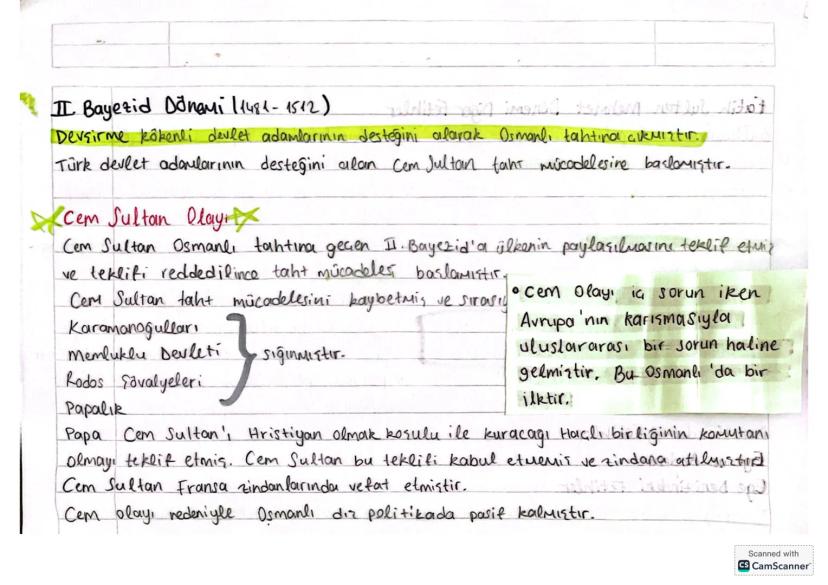 II. Bayezid Dönemi (1481 - 1512)
Devşirme kökenli devlet adamlarının desteğini alarak Osmanlı tahtına çıkmıştır.
Türk devlet adamlarının desteğini alan Cem Sultan taht mücadelesine başlamıştır.
Cem Sultan Olayı
Cem Sultan Osmanlı tahtına geçen II. Bayezid'a ülkenin paylaşılmasını teklif etmiş
ve teklifi reddedilince taht mücadeles başlamıştır.
Cem Sultan taht mücadelesini kaybetmiş ve
Karamanoğulları
Memluklu Devleti
Rodos Şövalyeleri
Papalık
sığınmıştır.
• Cem Olayı iç sorun iken
Avrupa'nın karışmasıyla
uluslararası bir sorun haline
gelmiştir. Bu Osmanlı'da bir
ilktir.
Papa Cem Sultan'ı Hristiyan olmak koşulu ile kuracağı Haçlı birliğinin komutanı
olmayı teklif etmiş. Cem Sultan bu teklifi kabul etmemiş ve zindana atılmıştır
Cem Sultan Fransa zindanlarında vefat etmiştir.
Cem olayı nedeniyle Osmanlı dış politikada pasif kalmıştır.
Scanned with
CS CamScanner